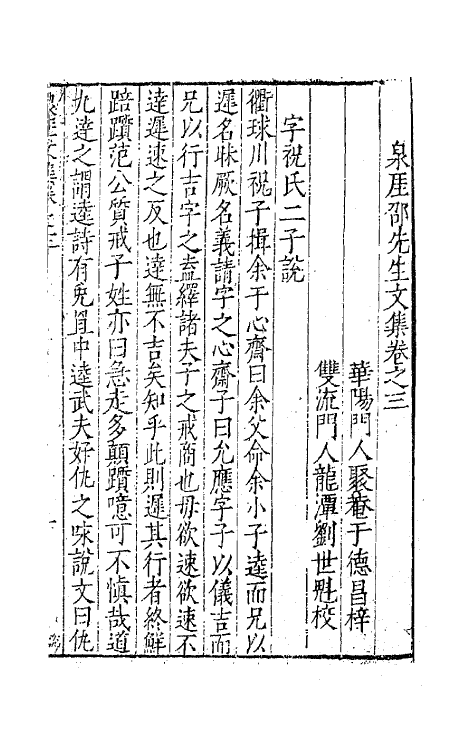 泉厓邵先生文集卷之三
華陽門人聚菴于德昌梓
雙流門人龍潭劉世魁校
字祝氏二子說
衢球川祝子揖余于心齋曰余父命余小子逵而兄以
遲名昧厥名義請字之心齋子曰允應字子以儀吉而
兄以行吉字之盍繹諸夫子之戒商也毋欲速欲速不
達遲速之反也達無不吉矣知乎此則遲其行者終鮮
踣躓范公質戒子姓亦曰急走多顛躓噫可不慎哉道
九達之謂逵詩有兎罝中逵武夫好仇之咏說文曰仇
泉厓文集卷之三
一